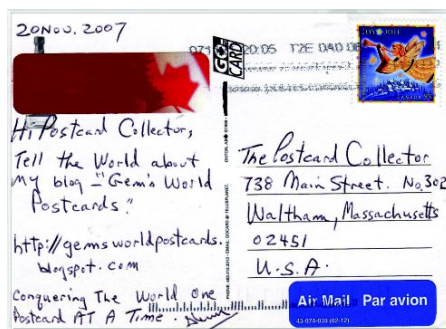 20 Nov. 2007
Hi Postcard Collector,
Tell the World about
my blog - "Gem's World
Postcards."
http://gemsworldpostcards.
blogspot.com
Conquering The World One
Postcard AT A Time.
GO-CARD
20:05 T2E 0A0
The Postcard Collector
738 Main Street. No. 302
Waltham, Massachusetts
02451
U.S.A.
Air Mail Par avion